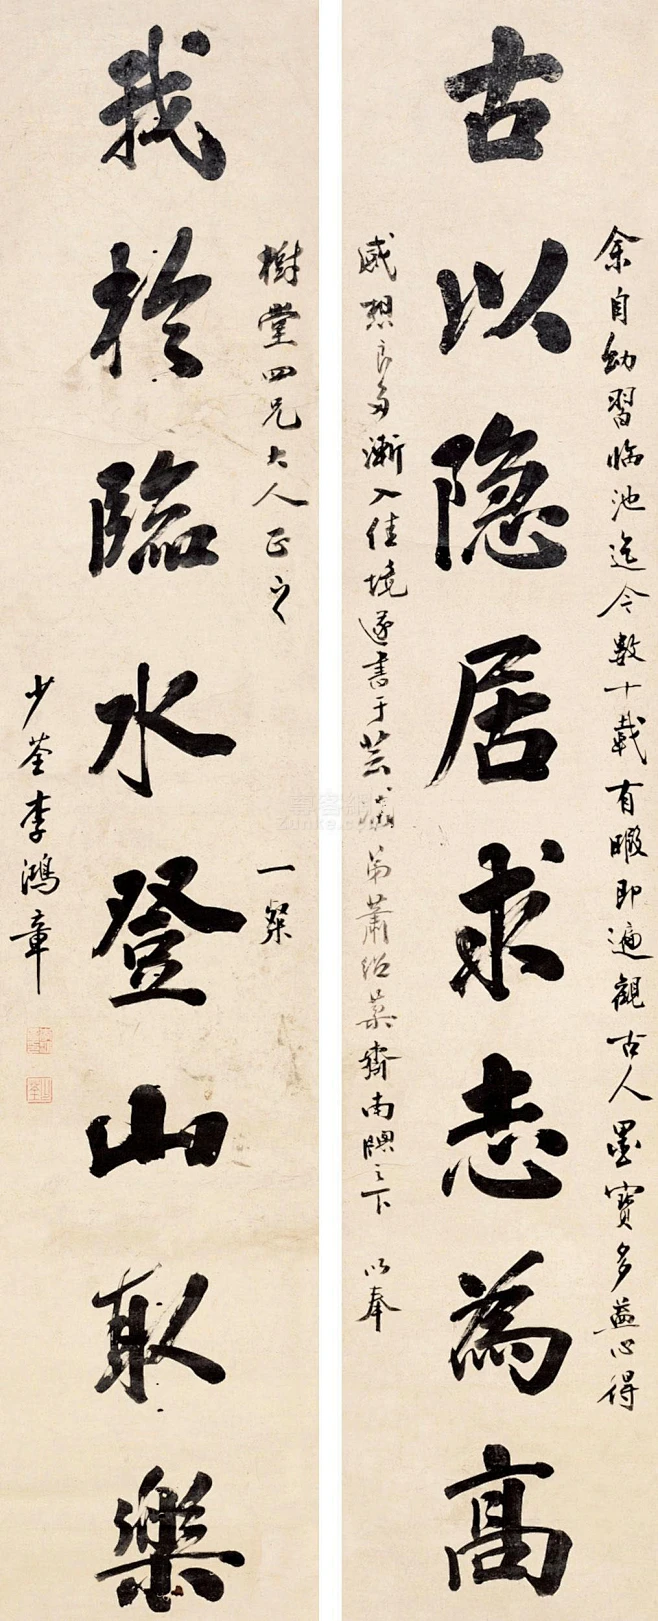 古以隐居求志為高
余自幼習临池迄今數十載有暇即遍觀古人墨寶多益心得
感想良多漸入佳境遂書于芸
弟蕭紹菜齋南牕之下 以奉
我於臨水登山取樂
樹堂四兄大人正之
一粲
少荃李鴻章